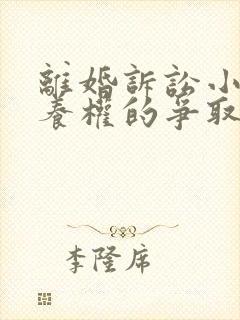 離婚訴訟小
養權的爭取
李隆席